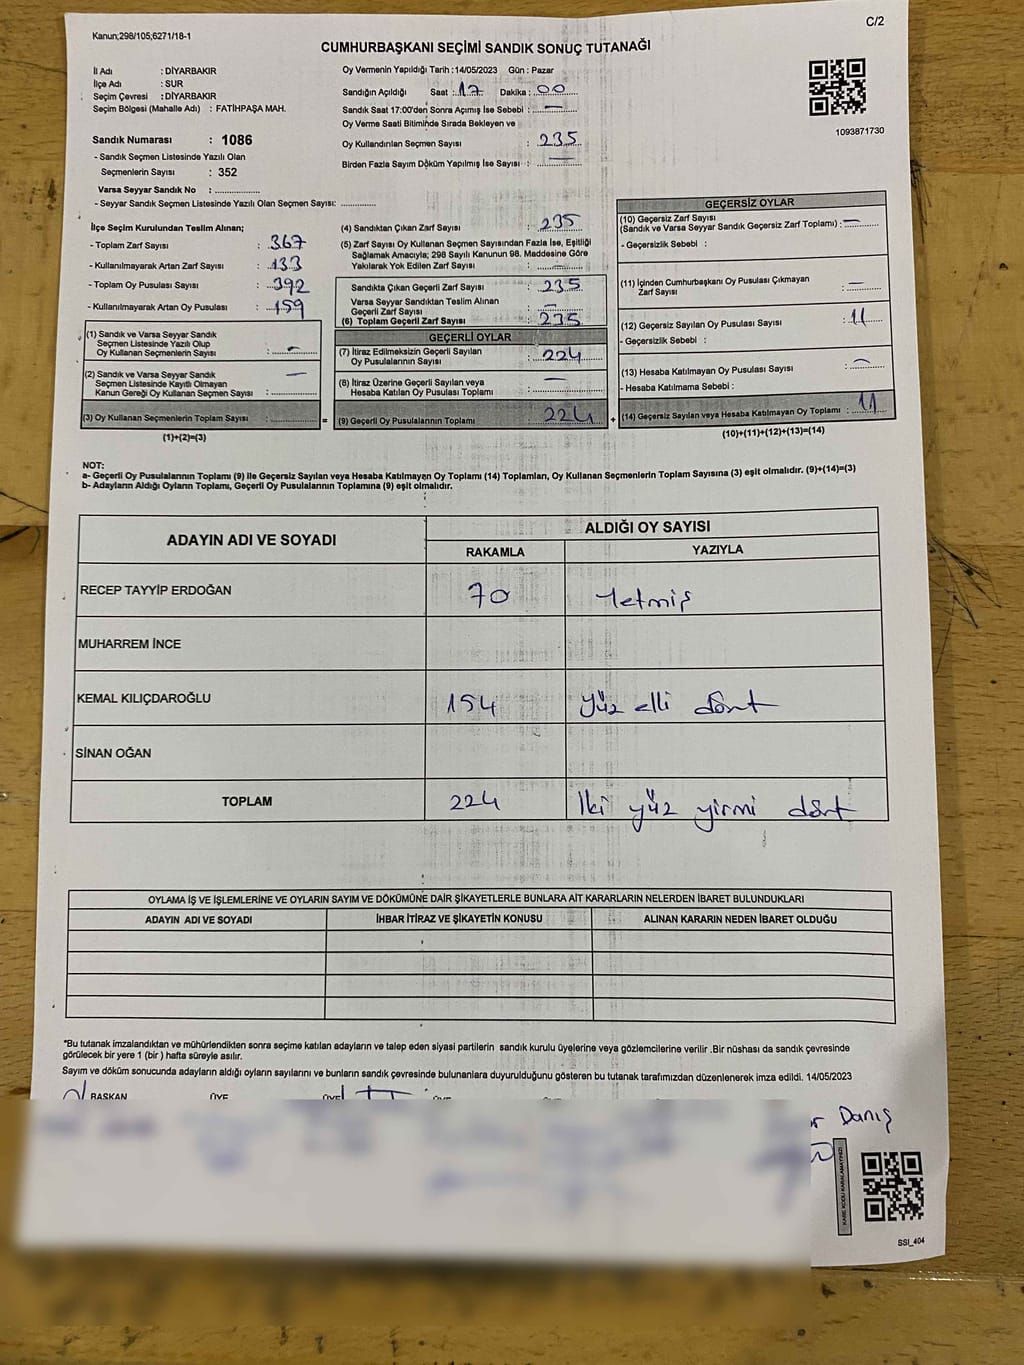 C/2
Kanun;298/105;6271/18-1
CUMHURBAŞKANI SEÇİMİ SANDIK SONUÇ TUTANAĞI
İl Adı : DİYARBAKIR
İlçe Adı : SUR
Seçim Çevresi : DİYARBAKIR
Seçim Bölgesi (Mahalle Adı) : FATİHPAŞA MAH.
Sandık Numarası : 1086
- Sandık Seçmen Listesinde Yazılı Olan
Seçmenlerin Sayısı : 352
Varsa Seyyar Sandık No : ..................
- Seyyar Sandık Seçmen Listesinde Yazılı Olan Seçmen Sayısı: ..............
Oy Vermenin Yapıldığı Tarih :14/05/2023 Gün : Pazar
Sandığın Açıldığı Saat : 17 Dakika : 00
Sandık Saat 17:00'den Sonra Açımış İse Sebebi : —
Oy Verme Saati Bitiminde Sırada Bekleyen ve
Oy Kullandırılan Seçmen Sayısı : 235
Birden Fazla Sayım Döküm Yapılmış İse Sayısı : —
1093871730
İlçe Seçim Kurulundan Teslim Alınan;
- Toplam Zarf Sayısı : 367
- Kullanılmayarak Artan Zarf Sayısı : 133
- Toplam Oy Pusulası Sayısı : 392
- Kullanılmayarak Artan Oy Pusulası : 159
(1) Sandık ve Varsa Seyyar Sandık
Seçmen Listesinde Yazılı Olup
Oy Kullanan Seçmenlerin Sayısı : —
(2) Sandık ve Varsa Seyyar Sandık
Seçmen Listesinde Kayıtlı Olmayan
Kanun Gereği Oy Kullanan Seçmen Sayısı : —
(3) Oy Kullanan Seçmenlerin Toplam Sayısı : ............... =
(1)+(2)=(3)
(4) Sandıktan Çıkan Zarf Sayısı : 235
(5) Zarf Sayısı Oy Kullanan Seçmen Sayısından Fazla İse, Eşitliği
Sağlamak Amacıyla; 298 Sayılı Kanunun 98. Maddesine Göre
Yakılarak Yok Edilen Zarf Sayısı : —
Sandıkta Çıkan Geçerli Zarf Sayısı : 235
Varsa Seyyar Sandıktan Teslim Alınan
Geçerli Zarf Sayısı : —
(6) Toplam Geçerli Zarf Sayısı : 235
GEÇERLİ OYLAR
(7) İtiraz Edilmeksizin Geçerli Sayılan
Oy Pusulalarının Sayısı : 224
(8) İtiraz Üzerine Geçerli Sayılan veya
Hesaba Katılan Oy Pusulası Toplamı : —
(9) Geçerli Oy Pusulalarının Toplamı : 224 +
GEÇERSİZ OYLAR
(10) Geçersiz Zarf Sayısı
(Sandık ve Varsa Seyyar Sandık Geçersiz Zarf Toplamı) : —
- Geçersizlik Sebebi :
(11) İçinden Cumhurbaşkanı Oy Pusulası Çıkmayan
Zarf Sayısı : —
(12) Geçersiz Sayılan Oy Pusulası Sayısı : 11
- Geçersizlik Sebebi :
(13) Hesaba Katılmayan Oy Pusulası Sayısı : —
- Hesaba Katılmama Sebebi :
(14) Geçersiz Sayılan veya Hesaba Katılmayan Oy Toplamı : 11
(10)+(11)+(12)+(13)=(14)
NOT:
a- Geçerli Oy Pusulalarının Toplamı (9) ile Geçersiz Sayılan veya Hesaba Katılmayan Oy Toplamı (14) Toplamları, Oy Kullanan Seçmenlerin Toplam Sayısına (3) eşit olmalıdır. (9)+(14)=(3)
b- Adayların Aldığı Oyların Toplamı, Geçerli Oy Pusulalarının Toplamına (9) eşit olmalıdır.
ADAYIN ADI VE SOYADI ALDIĞI OY SAYISI
RAKAMLA YAZIYLA
RECEP TAYYİP ERDOĞAN 70 Yetmiş
MUHARREM İNCE
KEMAL KILIÇDAROĞLU 154 yüz elli dört
SİNAN OĞAN
TOPLAM 224 İki yüz yirmi dört
OYLAMA İŞ VE İŞLEMLERİNE VE OYLARIN SAYIM VE DÖKÜMÜNE DAİR ŞİKAYETLERLE BUNLARA AİT KARARLARIN NELERDEN İBARET BULUNDUKLARI
ADAYIN ADI VE SOYADI İHBAR İTİRAZ VE ŞİKAYETİN KONUSU ALINAN KARARIN NEDEN İBARET OLDUĞU
*Bu tutanak imzalandıktan ve mühürlendikten sonra seçime katılan adayların ve talep eden siyasi partilerin sandık kurulu üyelerine veya gözlemcilerine verilir .Bir nüshası da sandık çevresinde
görülecek bir yere 1 (bir ) hafta süreyle asılır.
Sayım ve döküm sonucunda adayların aldığı oyların sayılarını ve bunların sandık çevresinde bulunanlara duyurulduğunu gösteren bu tutanak tarafımızdan düzenlenerek imza edildi. 14/05/2023
BAŞKAN ÜYE ÜYE
Danış
KARE KODU KARALAMAYINIZ!
SSI_404